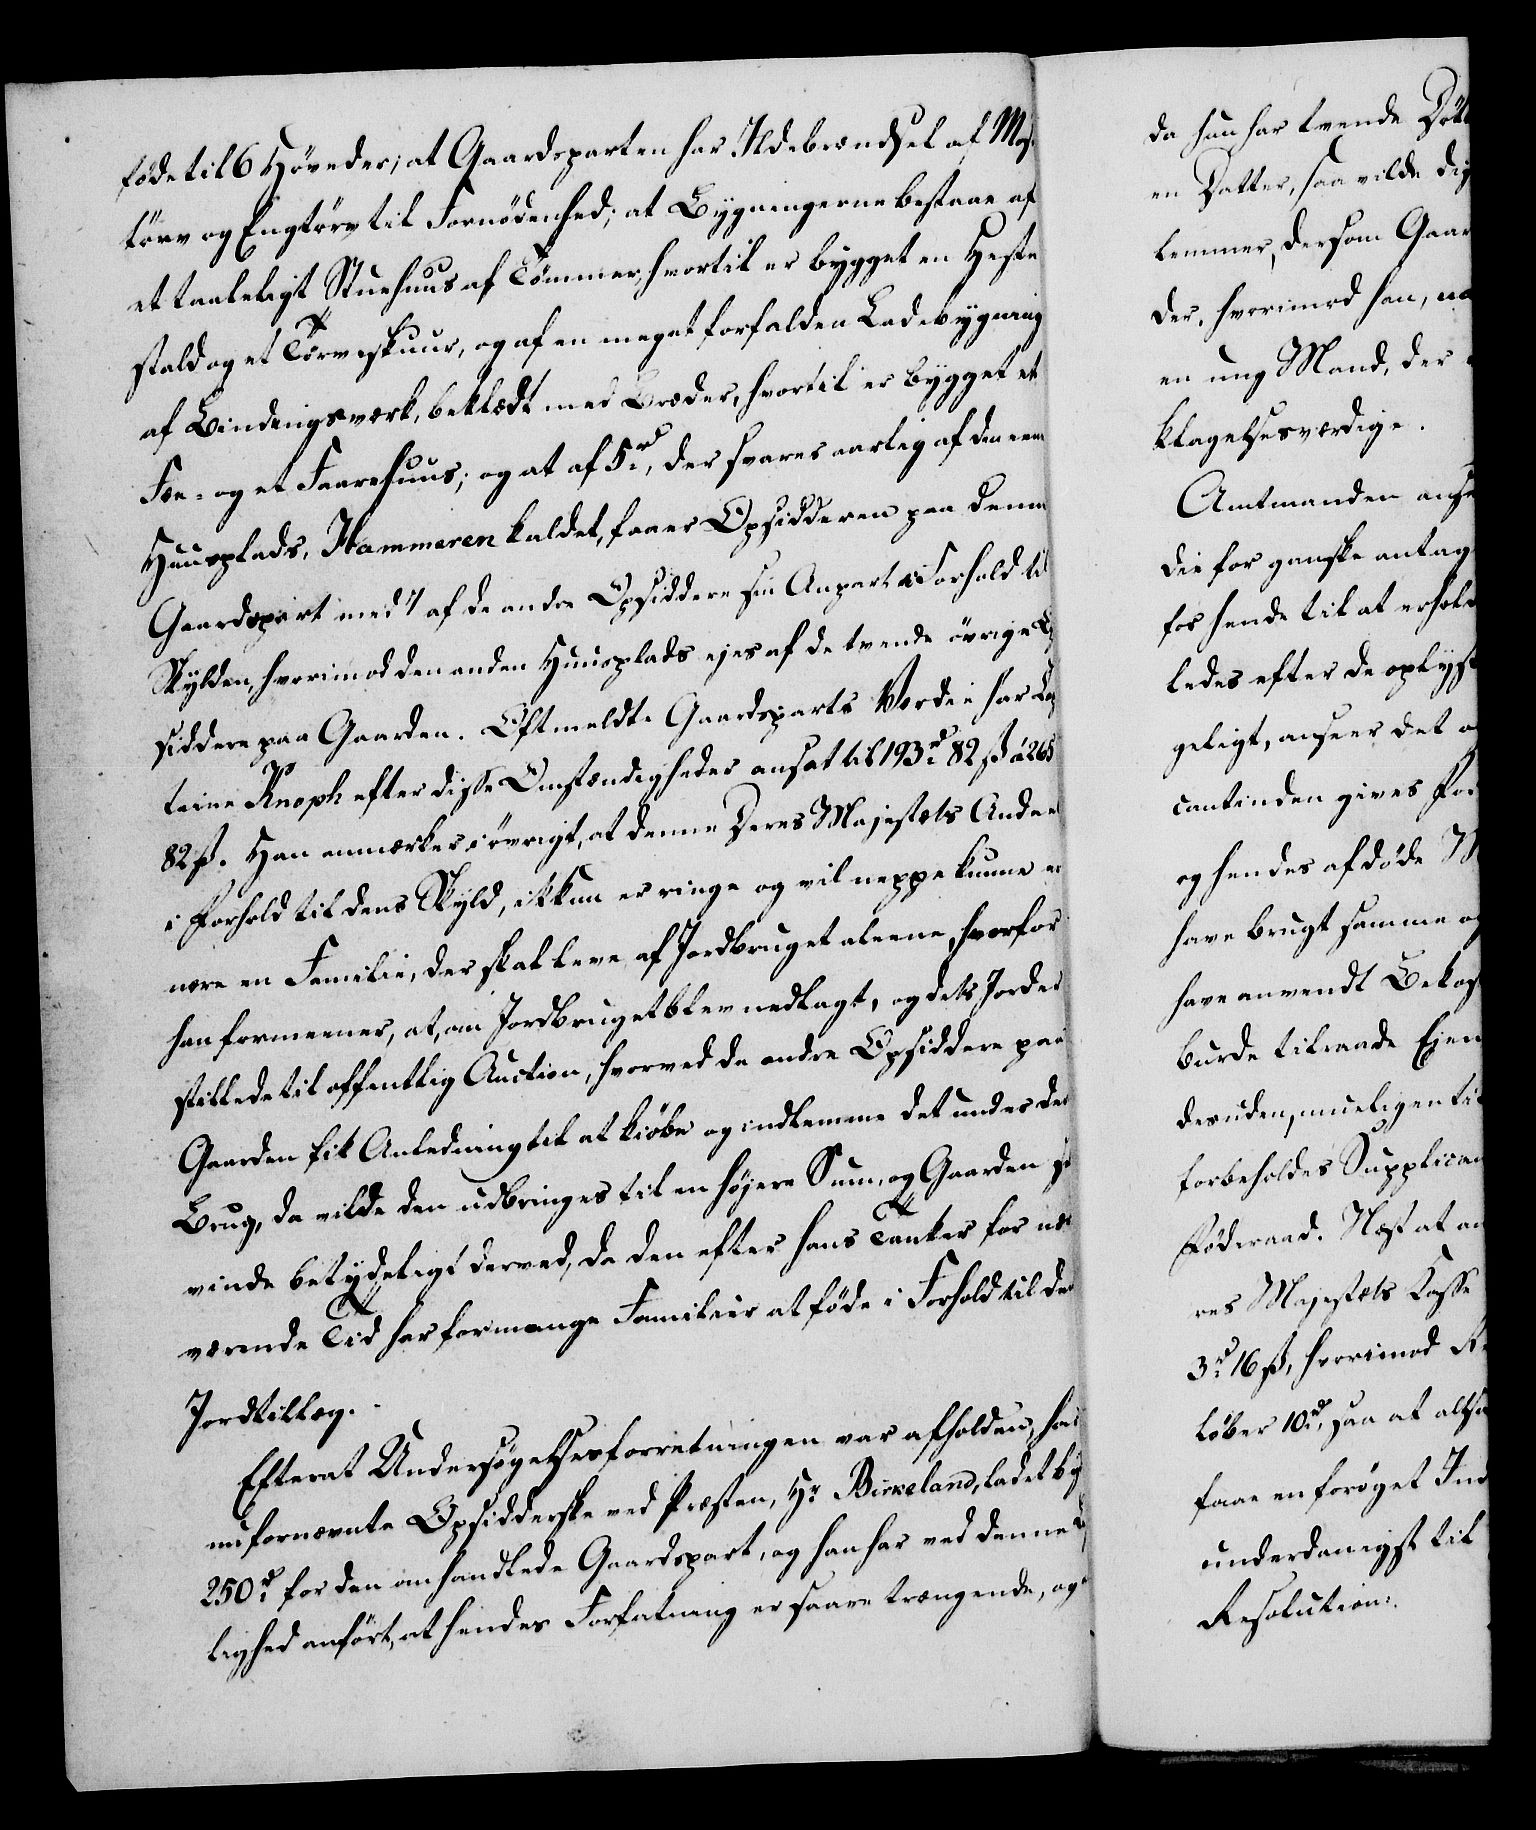 föde til 6 Høveder; at Gaardsparten har Ildebrændsel af Mos-
törv og Engtörv til Fornödenhed; at Bygningerne bestaae af
et taaleligt Stuehuus af Tömmer, hvortil er bygget en Heste
stald og et Törveskuur, og af en meget forfalden Ladebygning
af Bindingsværk, beklædt med Bræder, hvortil er bygget et
Fæe- og et Faarehuus; og at af 5 rd, der svares aarlig af den eene
Huusplads, Hammeren kaldet, faaer Opsidderen paa denne
Gaardspart med 1 af de andre Opsiddere sin Anpart i Forhold til
Skylden, hvorimod den anden Huusplads ejes af de tvende övrige Op
siddere paa Gaarden. Oftmeldte Gaardsparts Værdie har Cap
taine Knoph efter disse Omstændigheder ansat til 193 rd 82 ß à 265
82 ß. Han anmærker i övrigt, at denne Deres Majestæts Andeel
i Forhold til dens Skyld, ikkun er ringe og vil neppe kunne er
nære en Familie, der skal leve af Jordbruget aleene, hvorfor
han formeener, at, om Jordbruget blev nedlagt, og dets Jorder
stillede til offentlig Auction, hvorved de andre Opsiddere paa
Gaarden fik Anledning til at kiöbe og indlemme det under der
Brug, da vilde den udbringes til en höjere Sum, og Gaarden
vinde betydeligt derved, da den efter hans Tanker for nær
værende Tid har for mange Familier at föde i Forhold til de
Jordtillæg.
Efterat Undersögelsesforretningen var afholden, har
nufornævnte Opsidderske ved Præsten, Hr. Birkeland, ladet byde
250 rd for den omhandlede Gaardspart, og han har ved denne
lighed anfört, at hendes Forfatning er saare trængende, og
da hun har tvende Döt
en Datter, saa vilde di
lemmer, dersom Gaar
der, hvorimod han,
en ung Mand, der
klagelsesværdige.
Amtmanden anse
die for ganske antag
for hende til at erhol
ledes efter de oplyst
geligt, anseer det
cantinden gives For
og hendes afdöde M
have brugt samme og
have anvendt Bekos
burde tilraade Ejen
desuden, mueligen til
forbeholdes Supplican
Föderaad. Næst at an
res Majestæts Casse
3 rd 16 ß, hvorimod R
löber 10 rd, saa at altsa
faae en foröget Ind
underdanigst til
Resolution.